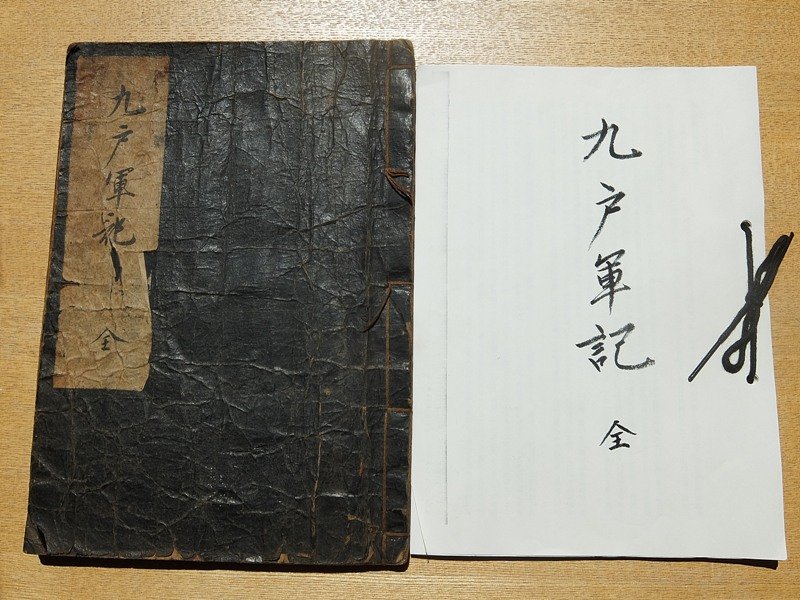 九戸軍記
全
九戸軍記
全